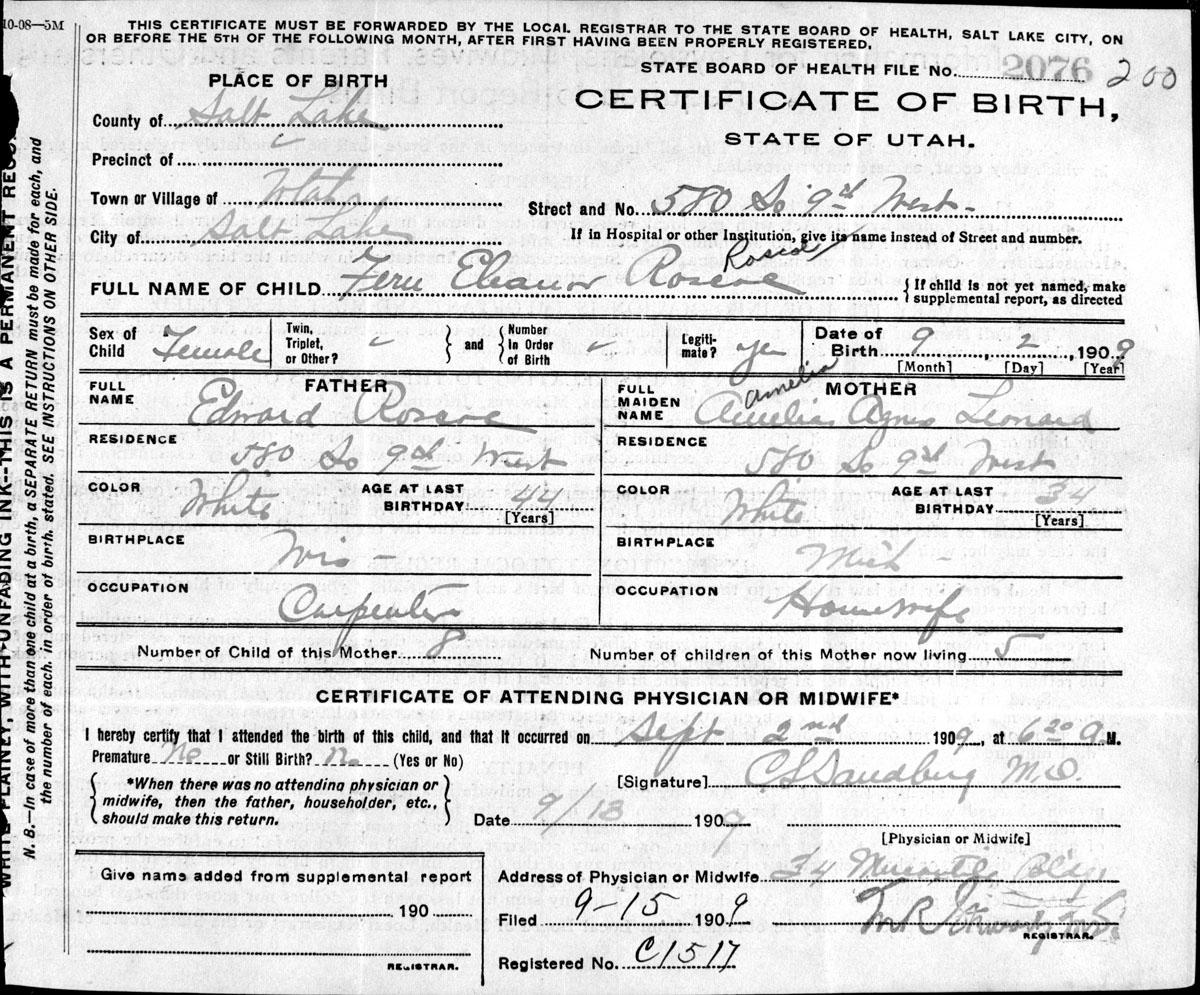 10-08—5M
THIS CERTIFICATE MUST BE FORWARDED BY THE LOCAL REGISTRAR TO THE STATE BOARD OF HEALTH, SALT LAKE CITY, ON
OR BEFORE THE 5TH OF THE FOLLOWING MONTH, AFTER FIRST HAVING BEEN PROPERLY REGISTERED.
PLACE OF BIRTH
STATE BOARD OF HEALTH FILE No. 2076 200
CERTIFICATE OF BIRTH,
STATE OF UTAH.
County of Salt Lake
Precinct of
Town or Village of Utah
Street and No. 580 So 9th West
City of Salt Lake
If in Hospital or other Institution, give its name instead of Street and number.
Roscoe
FULL NAME OF CHILD Fern Eleanor Roscoe { If child is not yet named, make
supplemental report, as directed
Sex of Child Female
Twin, Triplet, or Other?
and
Number In Order of Birth
Legitimate? ye
Date of Birth 9, 2, 1909
[Month] [Day] [Year]
FATHER
FULL NAME Edward Roscoe
RESIDENCE
580 So 9th West
COLOR White AGE AT LAST BIRTHDAY 44
[Years]
BIRTHPLACE
Wis
OCCUPATION
Carpenter
MOTHER
Amelia
FULL MAIDEN NAME Amelia Agnes Leonard
RESIDENCE
580 So 9th West
COLOR White AGE AT LAST BIRTHDAY 34
[Years]
BIRTHPLACE
Mich
OCCUPATION
Housewife
Number of Child of this Mother 8 Number of children of this Mother now living 5
CERTIFICATE OF ATTENDING PHYSICIAN OR MIDWIFE*
I hereby certify that I attended the birth of this child, and that it occurred on Sept 2nd 1909, at 6 20 A.M.
Premature No or Still Birth? No (Yes or No)
[Signature] C S Sandberg M.D.
*When there was no attending physician or
midwife, then the father, householder, etc.,
should make this return.
Date 9/13 1909
[Physician or Midwife]
Give name added from supplemental report
190
REGISTRAR.
Address of Physician or Midwife 34 Mercantile Bldg.
Filed 9-15 1909
REGISTRAR.
Registered No. C1517
WRITE PLAINLY, WITH UNFADING INK--THIS IS A PERMANENT RECO
N. B.—In case of more than one child at a birth, a SEPARATE RETURN must be made for each, and
the number of each, in order of birth, stated. SEE INSTRUCTIONS ON OTHER SIDE.